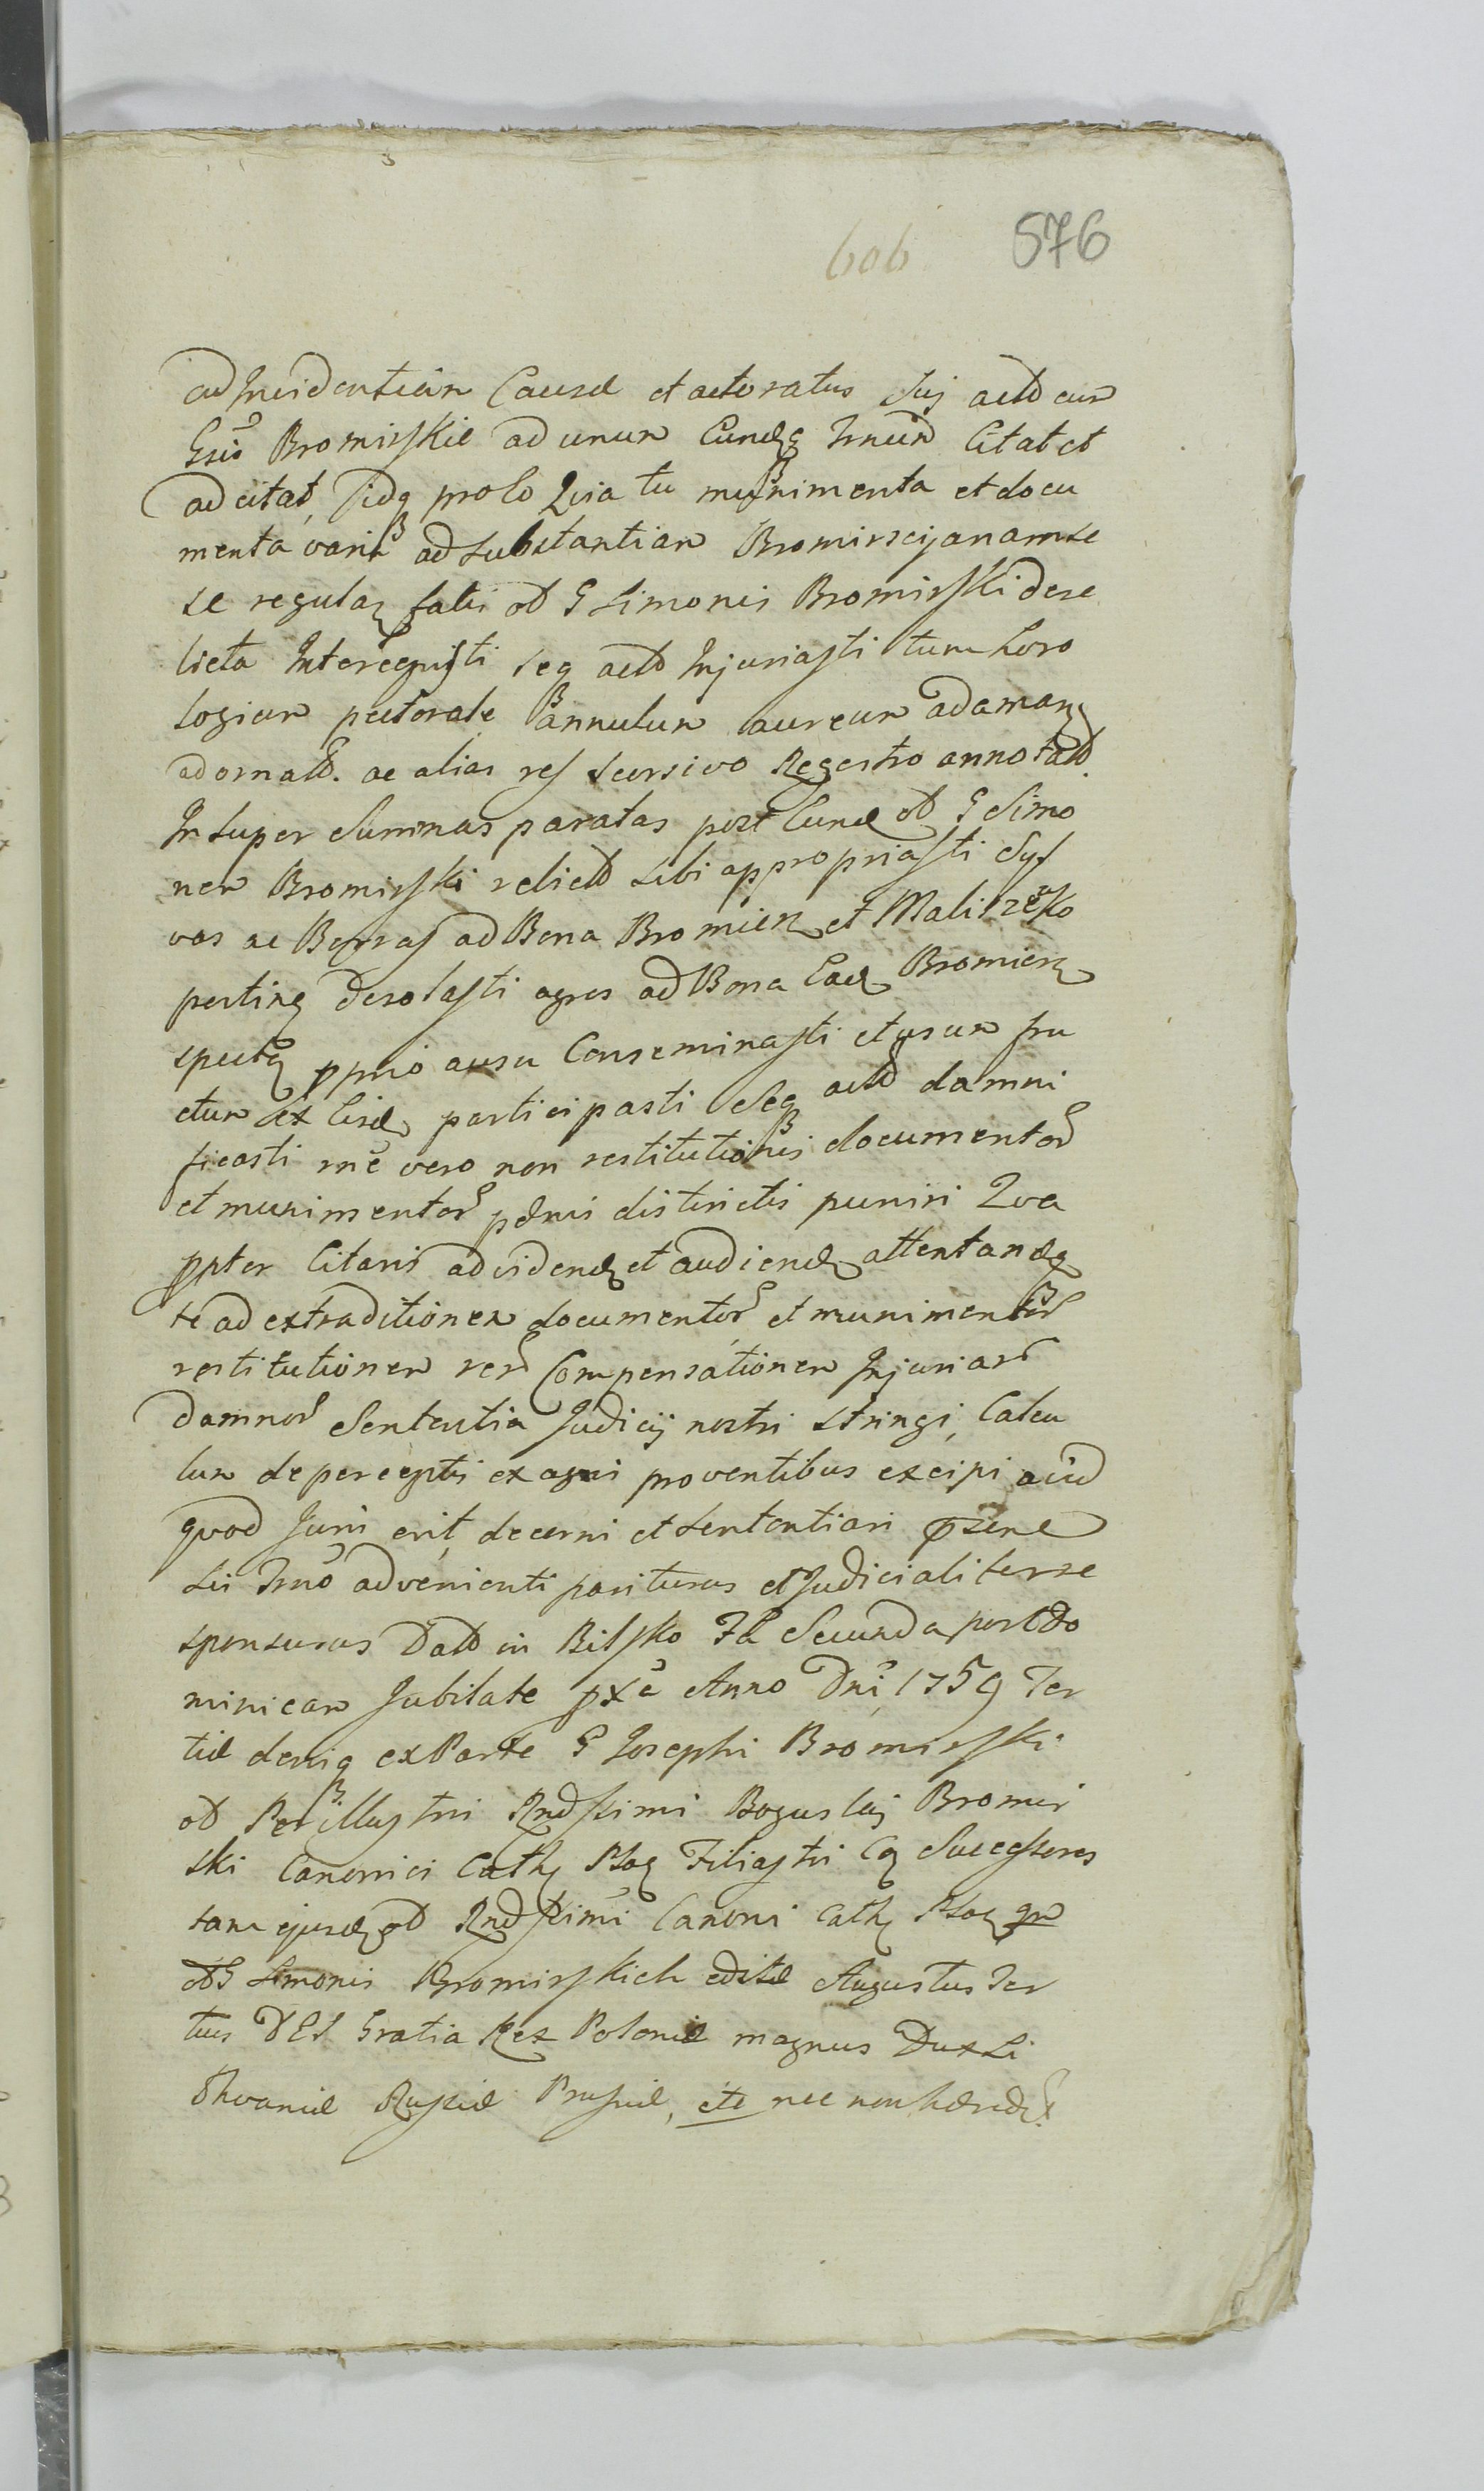 606 576
ad Incidentiam Causæ et actoratus sui actō cum
Gsió Bromirskie ad unum Eundꝫ Trnum Citat et
ad citat, Idq prolo Quia tu munimenta et docu
menta varia ad substantiam Bromirscijanam se
se regulaꝫ fatis oł G Simonis Bromirski dere
licta Intercepisti seq actō Injuriasti tum horo
logium pectorale annulum aureum adamanꝫ
adornatō. ac alias res seorsivo Regestro annotatō.
In super Summas paratas post Eund oł G Simo
nem Bromirski relictō sibi appropriasti Syl
vas ac Borras ad Bona Bromierz et Maliszewsko
pertinꝫ desolasti agros ad Bona Eadꝫ Bromierz
spectꝫ pprio ausu Conseminasti et usum fru
ctum ex Eisdꝫ participasti Seq actō damni
ficasti rne vero non restitutionis documentor
et munimentor pænis districtis puniri Qva
ppter Citaris ad videndꝫ et audiendꝫ attentandꝫ
te ad extraditionem documentor et munimentor
restitutionem rer Compensationem Injuriar
damnor Sententia Judicij nostri stringi, Calcu
lum de perceptis ex agris proventibus excipi aliud
quod Juris erit, decerni et sententiari præsens
sis Trno advenienti pariturus et Judicialiter re
sponsurus Datō in Bilsko Fa Secunda post Do
minicam Jubilate pxa Anno Dni 1759 Ter
tiæ deniq ex Parte G Josephi Bromirski
oł Perillustri Rndssimi Boguslaj Bromir
ski Canonici Cathꝫ Plocꝫ Filiastri Cq Successoris
tam ejusdꝫ oł Rndssimi Canoni Cathꝫ Plocꝫ qm
oł G Simonis Bromirskich editæ Augustus Ter
tius DEI Gratia Rex Poloniæ magnus Dux Li
thvaniæ Russiæ Prussiæ, etc nec non hæredꝫ